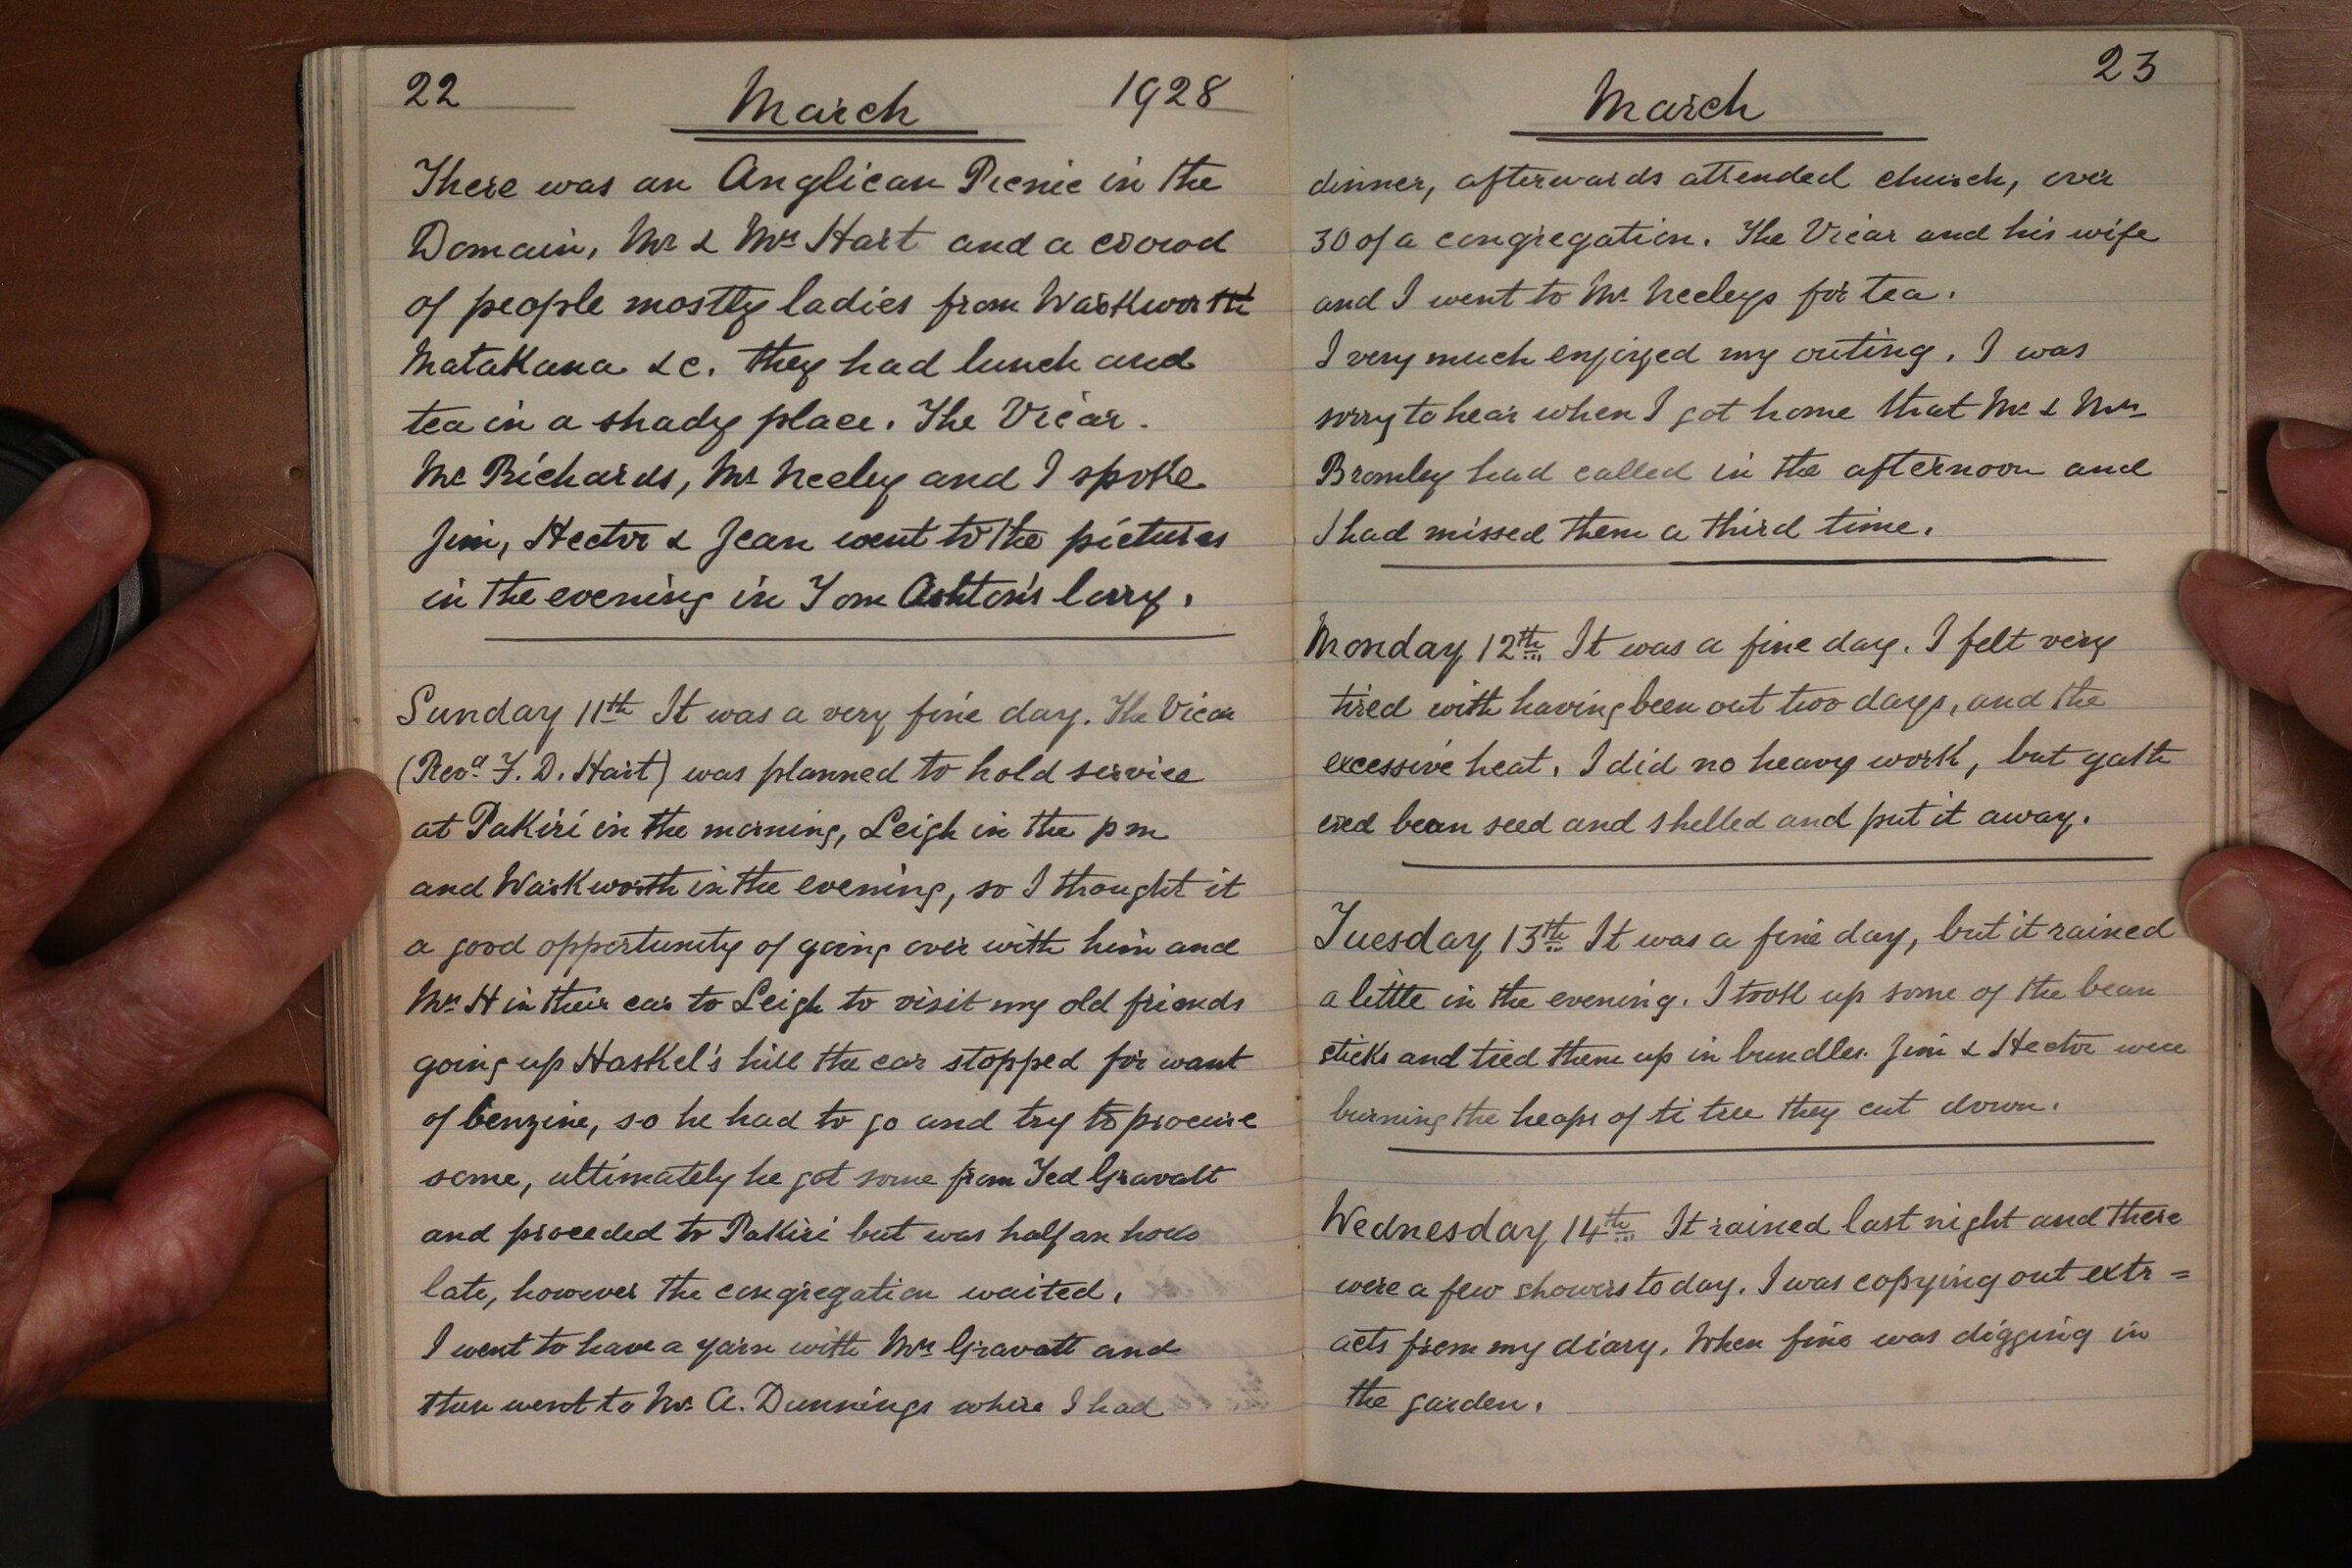 22 March 1928
There was an Anglican Picnic in the
Domain, Mr & Mrs Hart and a crowd
of people mostly ladies from Warkworth
Matakana &c. they had lunch and
tea in a shady place. The Vicar.
Mr Richards, Mr Neeley and I spoke
Jim, Hector & Jean went to the pictures
in the evening in Tom Ashton's lorry.
Sunday 11th It was a very fine day. The Vicar
(Revd. F. D. Hart) was planned to hold service
at Pakiri in the morning, Leigh in the pm
and Warkworth in the evening, so I thought it
a good opportunity of going over with him and
Mrs H in their car to Leigh to visit my old friends
going up Haskel's hill the car stopped for want
of benzine, so he had to go and try to procure
some, ultimately he got some from Ted Gravatt
and proceeded to Pakiri but was half an hour
late, however the congregation waited.
I went to have a yarn with Mrs Gravatt and
then went to Mr. A. Dunnings where I had
23
March
dinner, afterwards attended church, over
30 of a congregation. The Vicar and his wife
and I went to Mr Neeleys for tea.
I very much enjoyed my outing. I was
sorry to hear when I got home that Mr & Mrs
Bromley had called in the afternoon and
I had missed them a third time.
Monday 12th It was a fine day. I felt very
tired with having been out two days, and the
excessive heat. I did no heavy work, but gath
ered bean seed and shelled and put it away.
Tuesday 13th It was a fine day, but it rained
a little in the evening. I took up some of the bean
sticks and tied them up in bundles. Jim & Hector were
burning the heaps of ti tree they cut down.
Wednesday 14th It rained last night and there
were a few showers today. I was copying out extr =
acts from my diary. When fine was digging in
the garden.